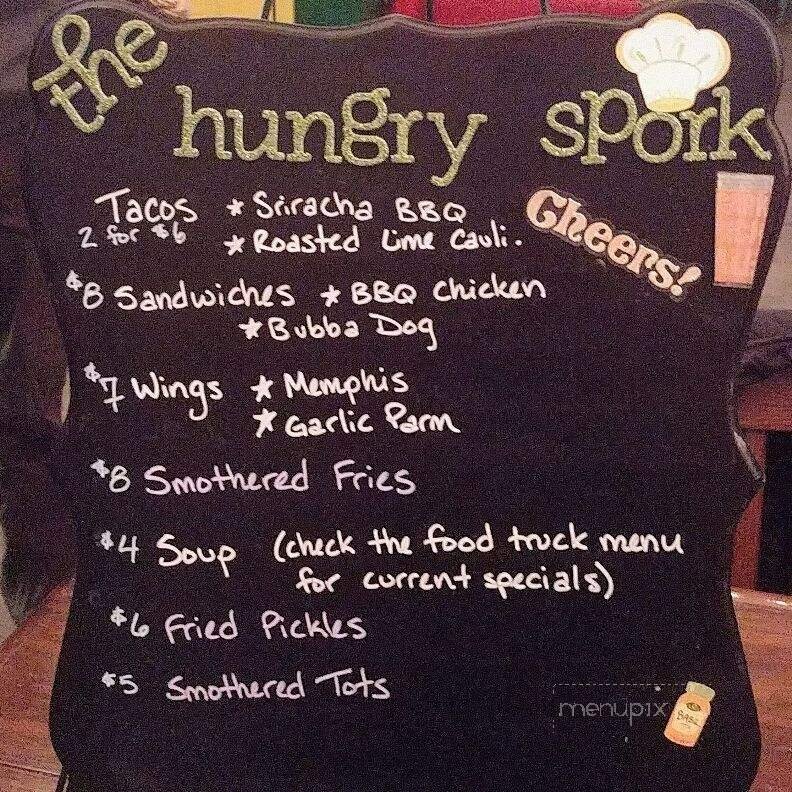 the hungry spork
Cheers!
Tacos * Sriracha BBQ
2 for $6 * Roasted Lime Cauli.
$8 Sandwiches * BBQ Chicken
* Bubba Dog
$7 Wings * Memphis
* Garlic Parm
$8 Smothered Fries
$4 Soup (check the food truck menu
for current specials)
$6 Fried Pickles
$5 Smothered Tots
menupix